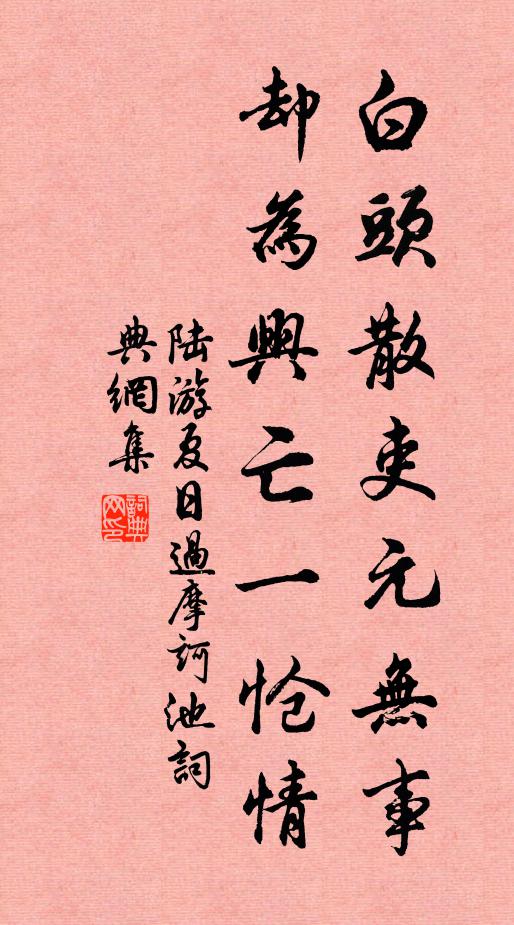 白頭散吏元無事
却為興亡一愴情
陸游夏日過摩訶池詞
典網集
詞典网印